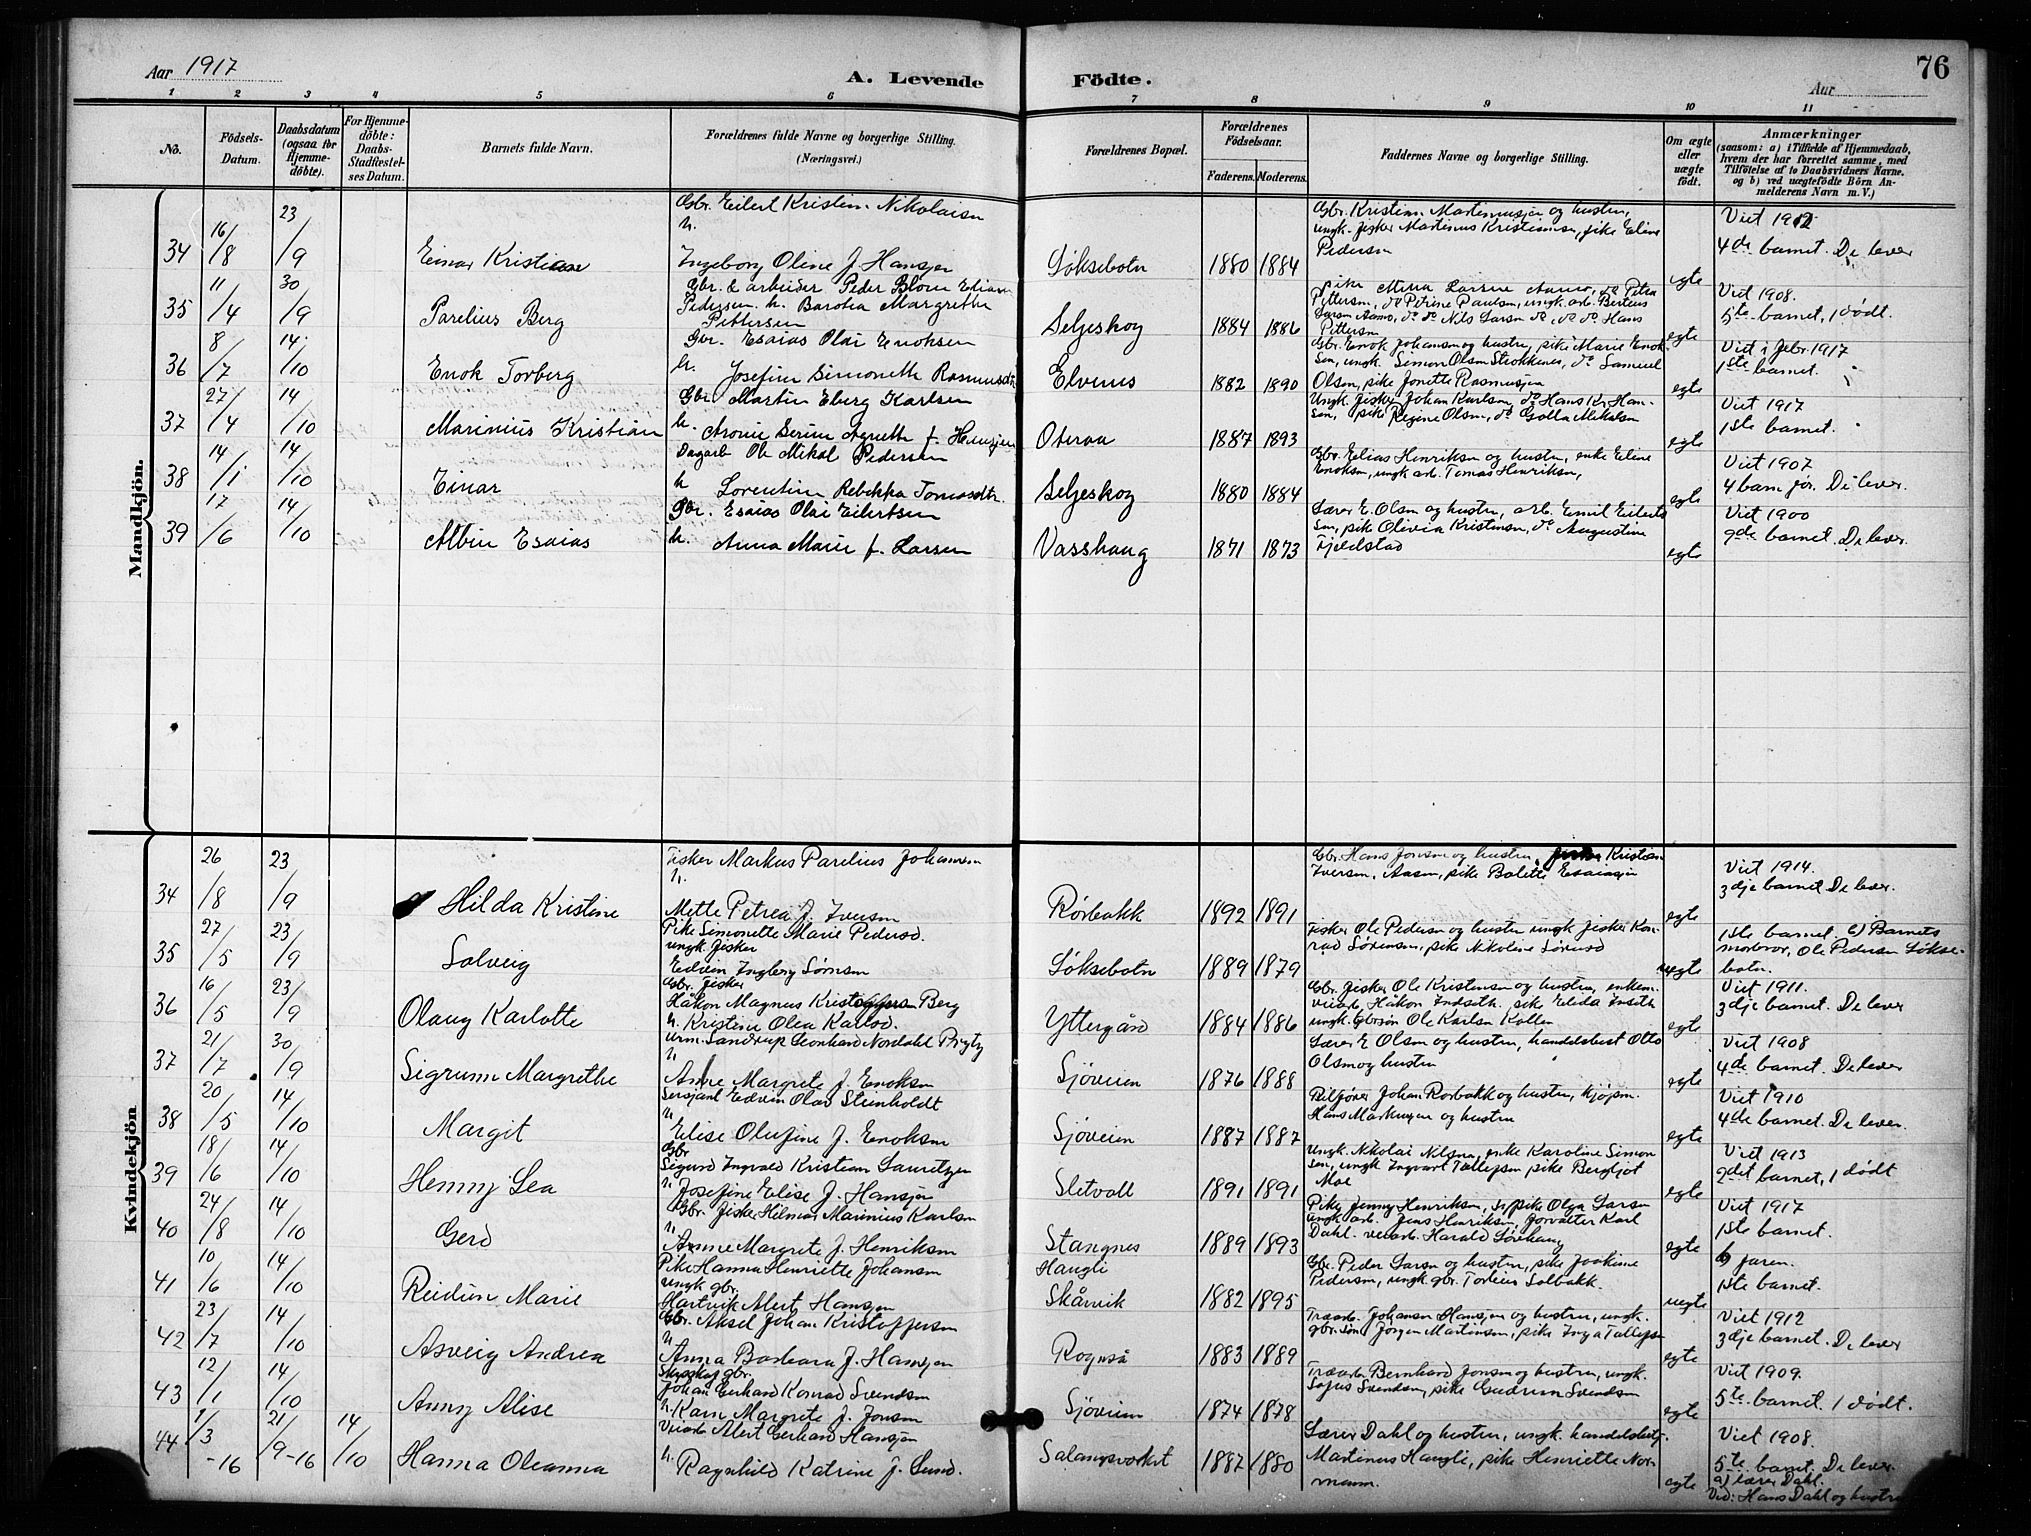 Aar 1917
A. Levende
Födte.
Aar
76
1 2 3 4 5 6 7 8 9 10 11
No.
Födsels-Datum.
Daabsdatum (ogsaa for Hjemme-döbte).
For Hjemme-döbte: Daabs-Stadfæstel-ses Datum.
Barnets fulde Navn.
Forældrenes fulde Navne og borgerlige Stilling. (Næringsvei.)
Forældrenes Bopæl.
Forældrenes Födselsaar.
Faderens. Moderens.
Faddernes Navne og borgerlige Stilling.
Om ægte eller uægte födt.
Anmærkninger
(saasom: a) i Tilfælde af Hjemmedaab, hvem der har forrettet samme, med Tilföielse af to Daabsvidners Navne, og b) ved uægtefödte Börn An-melderens Navn m. V.)
Mandkjön.
34 16/8 23/9 Einar Kristian
Gbr. Eilert Kristian Nikolaisen
h. Ingeborg Oline f. Hansen
Søksebotn 1880 1884
Gbr. Kristian Martinussen og hustru,
ungk. fisker Martinus Kristiansen, pike Eline
Pedersen
egte
Viet 1912
4de barnet. De lever
35 11/4 30/9 Parelius Berg
Gbr. & arbeider Peder Blom Edian
Pedersen h. Barotea Margrethe
Pettersen
Seljeskog 1884 1886
pike Mina Larsine Aamo, do Petra
Pettersen, do Petrine Paulsen, ungk. arb. Berteus
Larsen Aamo, do do Nils Larsen do, do do Hans
Pettersen
egte
Viet 1908.
5te barnet, 1 dødt.
36 8/7 14/10 Enok Torberg
Gbr. Esaias Olai Enoksen
h. Josefine Simonette Rasmusdtr
Elvenes 1882 1890
Gbr. Enok Johansen og hustru, pike Marie Enok-
sen, ungk. Simon Olsen Strokkenes, do Samuel
Olsen, pike Jonette Rasmussen
egte
Viet i febr. 1917
1ste barnet.
37 27/4 14/10 Marinius Kristian
Gbr. Martin Eberg Karlsen
h. Aronie Serine Agnette f. Hansen
Oteraa 1887 1893
Ungk. fisker Johan Karlsen, do Hans Kr. Han-
sen, pike Regine Olsen, do Golla Mikalsen
egte
Viet 1917
1ste barnet.
38 14/1 14/10 Einar
Dagarb Ole Mikal Pedersen
h Lorentine Rebekka Tomasdtr.
Seljeskog 1880 1884
Gbr. Elias Henriksen og hustru, enke Eline
Enoksen, ungk arb. Tomas Henriksen,
egte
Viet 1907
4 barn før. De lever.
39 17/6 14/10 Albin Esaias
Gbr. Esaias Olai Eilertsen
h. Anna Marie f. Larsen
Vasshaug 1871 1873
Lærer E. Olsen og hustru, arb. Emil Eilert-
sen, pike Olivia Kristensen, do Augustine
Fjeldstad
egte
Viet 1900
9de barnet. De lever.
Kvindekjön
34 26/8 23/9 Hilda Kristine
Fisker Markus Parelius Johansen
h. Mette Petrea f. Iversen
Rørbakk 1892 1891
Gbr. Hans Jonsen og hustru, Kristian
Iversen, Aasen, pike Bolette Esaiassen
egte
Viet 1914.
3dje barnet. De lever.
35 27/5 23/9 Solveig
Pike Simonette Marie Pedersd.
ungk. fisker
Edvin Ingberg Sørensen
Søksebotn 1889 1879
Fisker Ole Pedersen og hustru ungk fisker Kon-
rad Sørensen, pike Nikoline Sørensd
uegte
1ste barnet. b) Barnets
morbror, Ole Pedersen Søkse-
botn.
36 16/5 23/9 Olaug Karlotte
Gbr. fisker
Håkon Magnus Kristoffersen Berg
h. Kristine Olea Karlsd.
Yttergård 1884 1886
Gbr. fisker Ole Kristensen og hustru, enkem.
veiarb. Håkon Indseth. pike Elida Inseth
ungk. Gbrsøn Ole Karlsen Kollen
egte
Viet 1911.
3dje barnet. De lever
37 21/7 30/9 Sigrunn Margrethe
Urm. Sandrup Leonhard Nordahl Prytz
h Anne Margrete f. Enoksen
Sjøveien 1876 1888
Lærer E Olsen og hustru, handelsbest Otto
Olsen og hustru
egte
Viet 1908
4de barnet. De lever
38 20/5 14/10 Margit
Sersjant Edvin Olav Steinholdt
h Elise Olufine f. Enoksen
Sjøveien 1887 1887
Bilfører Johan Rørbakk og hustru, kjøpm.
Hans Markussen og hustru
egte
Viet 1910
4de barnet. De lever.
39 18/6 14/10 Henny Lea
Gbr
Sigurd Ingvald Kristian Lauritzen
h. Josefine Elise f. Hansen
Sletvoll 1891 1891
Ungk. Nikolai Nilsen, enke Karoline Simon
sen, ungk Ingvart Tollefsen pike Bergljot
Moe
egte
Viet 1913
2det barnet, 1 dødt
40 24/8 14/10 Gerd
Gbr. fisker Hilmar Marinius Karlsen
h Anne Margrete f. Henriksen
Stangnes 1889 1893
Pike Jenny Henriksen, pike Olga Larsen
ungk arb. Jens Henriksen, forvalter Karl
Dahl. veiarb Harald Lørehaug
egte
Viet 1917
1ste barnet.
41 10/6 14/10 Reidun Marie
Pike Hanna Henriette Johansen
ungk gbr.
Hartvik Alert Hansen
Haugli
Skårvik 1882 1895
Gbr. Peder Larsen og hustru, pike Joakime
Pedersen, ungk gbr. Torleius Solbakk.
uegte
b) faren.
1ste barnet.
42 23/7 14/10 Asveig Andrea
Gbr. Aksel Johan Kristoffersen
h. Anna Barbara f. Hansen
Rognså 1883 1889
Træarb. Johanson Hansen og hustru, ungk.
gbr.søn Jørgen Martinsen, pike Inga Tollefsen
egte
Viet 1912
3dje barnet. De lever
43 12/1 14/10 Anny Alise
Skysskaf gbr.
Johan Gerhard Konrad Svendsen
h. Karn Margrete f. Jonsen
Sjøveien 1874 1878
Træarb Bernhard Jonsen og hustru, ungk.
Sofus Svendsen, pike Gudrun Svendsen
egte
Viet 1909.
5te barnet. 1 dødt.
44 1/3-16 21/9-16 14/10 Hanna Oleanna
Veiarb Alert Gerhard Hansen
h. Ragnhild Katrine f. Lund.
Salangsverket 1887 1880
Lærer Dahl og hustru, ungk. handelsbetj.
Martinus Haugli, pike Henriette Nor-
mann.
egte
Viet 1908.
5te barnet. De lever
a) lærer Dahl.
Vid: Hans Dahl og hustru